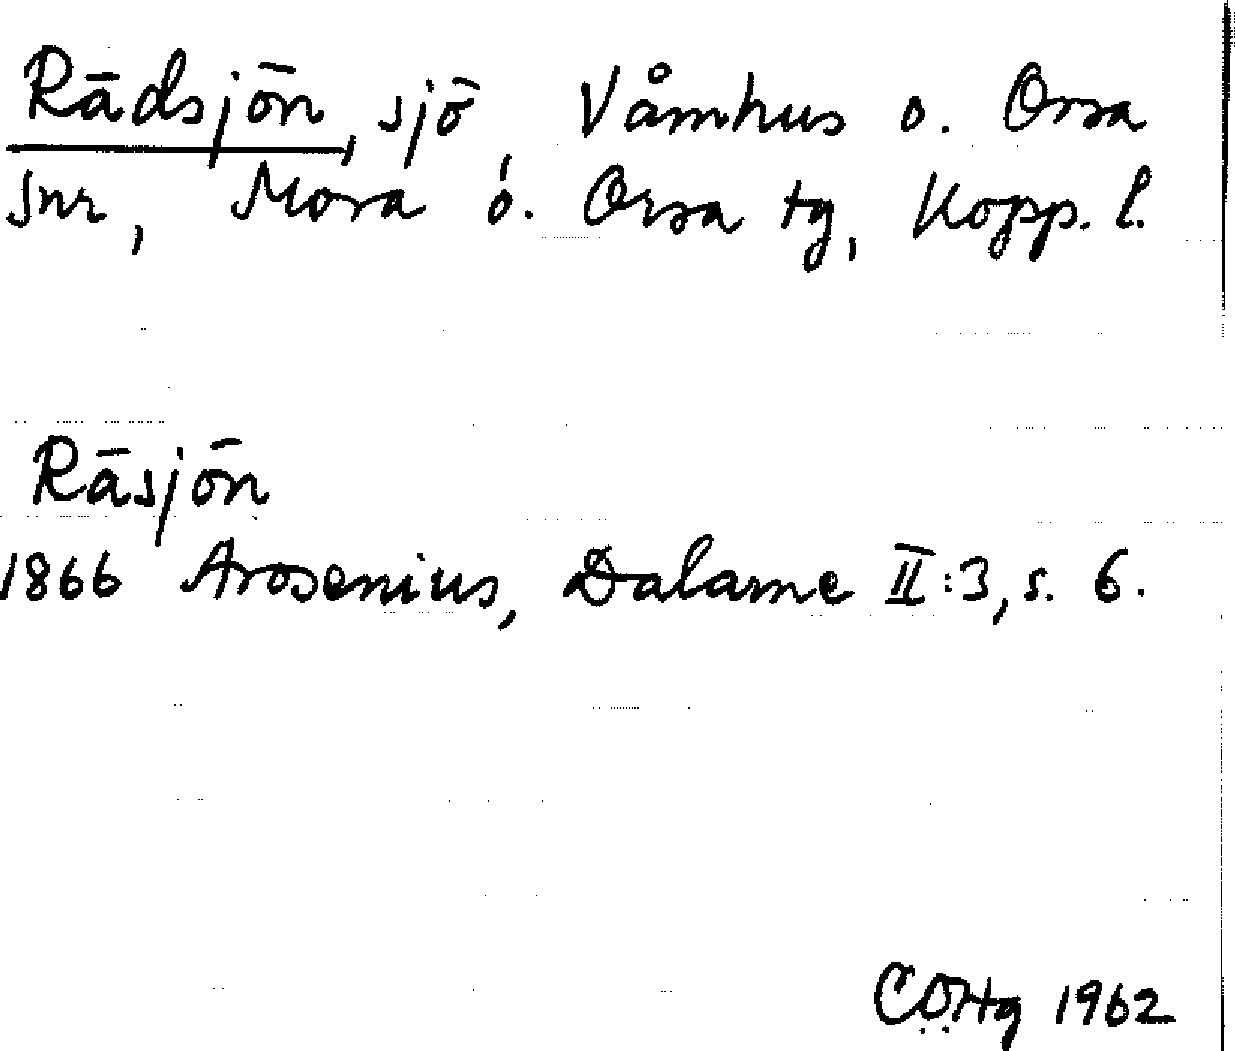 Rädsjön, sjö, Våmhus o. Orsa
snr, Mora o. Orsa tg, Kopp. l.
Räsjön
1866 Arosenius, Dalarne II:3, s. 6.
COHg 1962